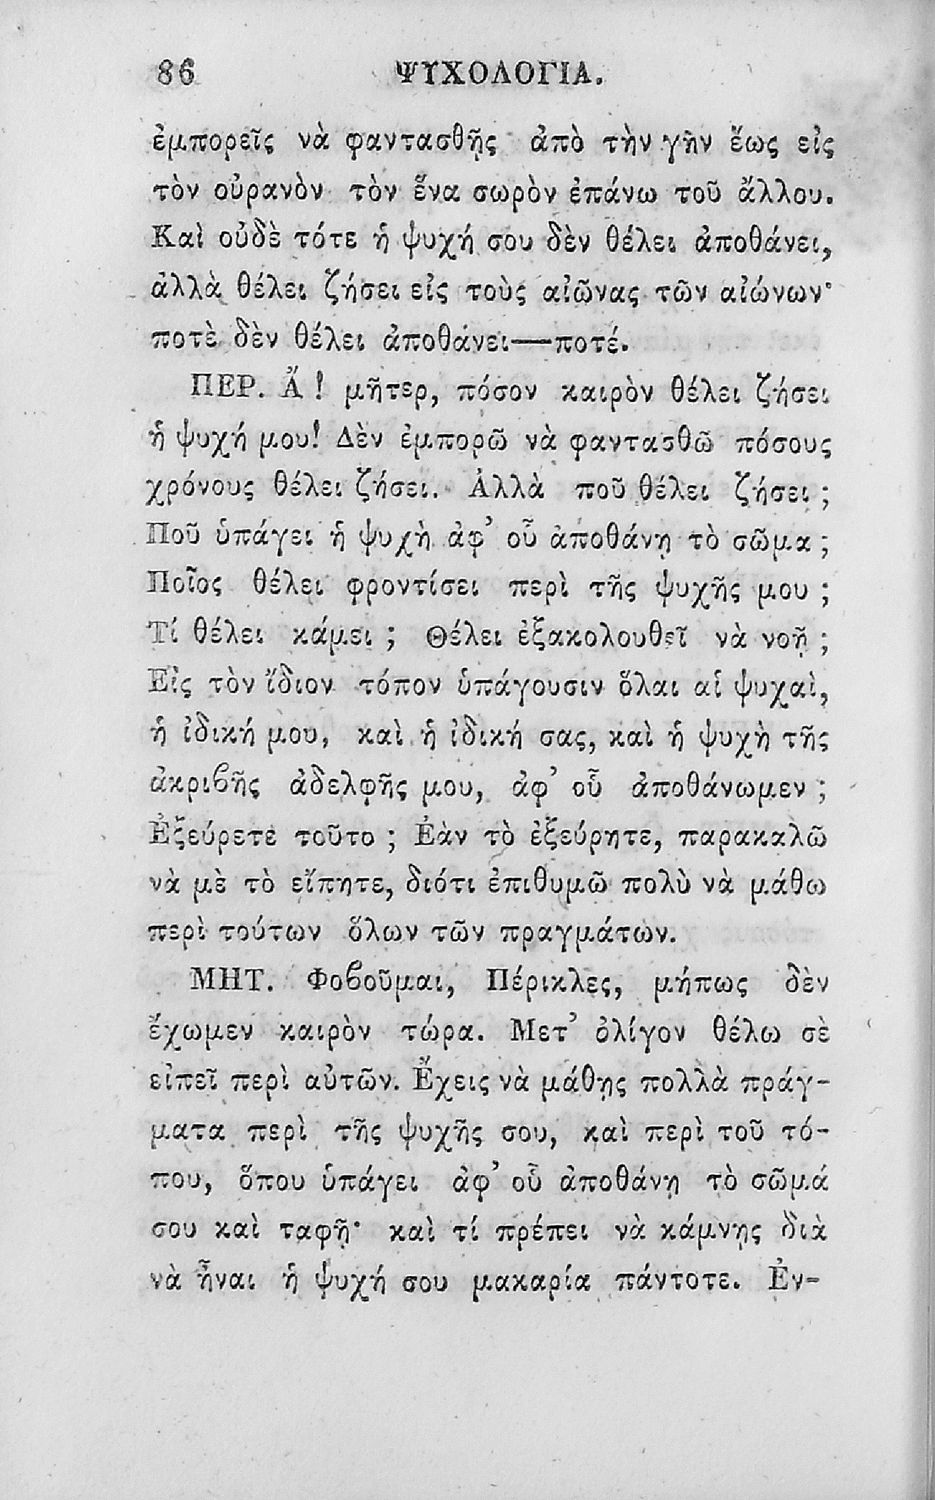 86 ΨΥΧΟΛΟΓΙΑ.
ἐμπορεῖς νὰ φαντασθῇς ἀπὸ τὴν γῆν ἕως εἰς
τὸν οὐρανὸν τὸν ἕνα σωρὸν ἐπάνω τοῦ ἄλλου.
Καὶ οὐδὲ τότε ἡ ψυχή σου δὲν θέλει ἀποθάνει,
ἀλλὰ θέλει ζήσει εἰς τοὺς αἰῶνας τῶν αἰώνων·
ποτὲ δὲν θέλει ἀποθάνει—ποτέ.
ΠΕΡ. Ἄ! μῆτερ, πόσον καιρὸν θέλει ζήσει
ἡ ψυχή μου! Δὲν ἐμπορῶ νὰ φαντασθῶ πόσους
χρόνους θέλει ζήσει. Ἀλλὰ ποῦ θέλει ζήσει ;
Ποῦ ὑπάγει ἡ ψυχὴ ἀφ’ οὗ ἀποθάνῃ τὸ σῶμα ;
Ποῖος θέλει φροντίσει περὶ τῆς ψυχῆς μου ;
Τί θέλει κάμει ; Θέλει ἐξακολουθεῖ νὰ νοῇ ;
Εἰς τὸν ἴδιον τόπον ὑπάγουσιν ὅλαι αἱ ψυχαὶ,
ἡ ἰδική μου, καὶ ἡ ἰδική σας, καὶ ἡ ψυχὴ τῆς
ἀκριβῆς ἀδελφῆς μου, ἀφ’ οὗ ἀποθάνωμεν ;
Ἐξεύρετε τοῦτο ; Ἐὰν τὸ ἐξεύρητε, παρακαλῶ
νὰ μὲ τὸ εἴπητε, διότι ἐπιθυμῶ πολὺ νὰ μάθω
περὶ τούτων ὅλων τῶν πραγμάτων.
ΜΗΤ. Φοβοῦμαι, Πέρικλες, μήπως δὲν
ἔχωμεν καιρὸν τώρα. Μετ’ ὀλίγον θέλω σὲ
εἰπεῖ περὶ αὐτῶν. Ἔχεις νὰ μάθῃς πολλὰ πράγ-
ματα περὶ τῆς ψυχῆς σου, καὶ περὶ τοῦ τό-
που, ὅπου ὑπάγει ἀφ’ οὗ ἀποθάνῃ τὸ σῶμά
σου καὶ ταφῇ· καὶ τί πρέπει νὰ κάμνῃς διὰ
νὰ ἦναι ἡ ψυχή σου μακαρία πάντοτε. Ἐν-